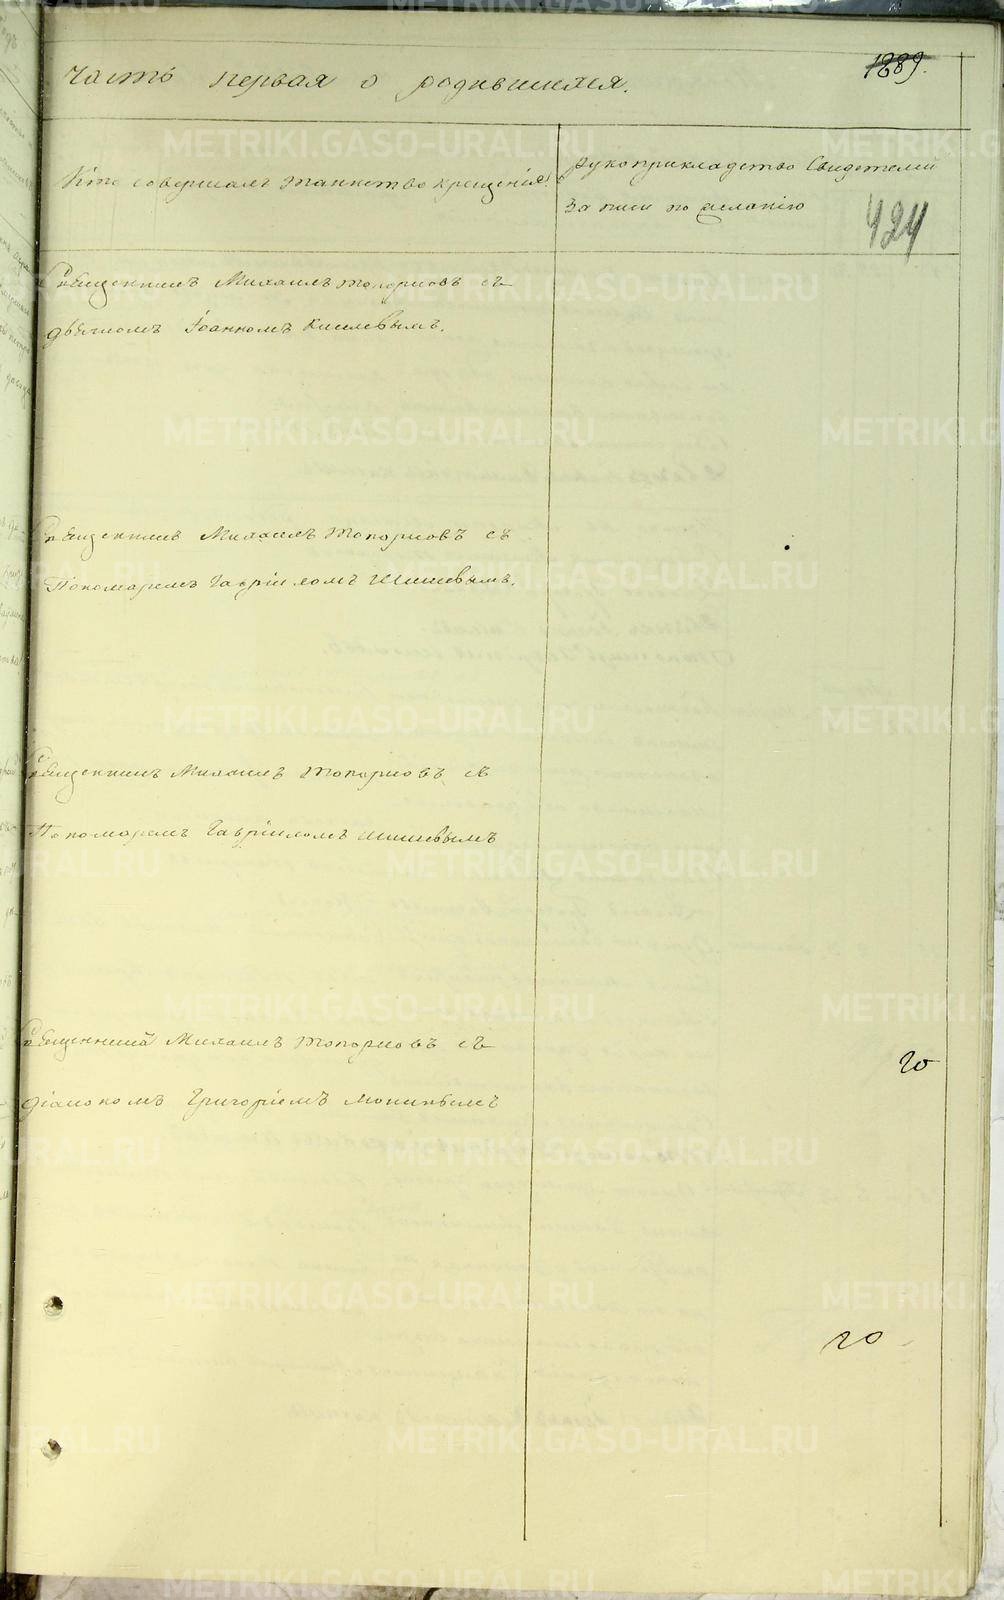 часть первая о родившихся.
1889.
Кто совершалъ таинство крещенія.
рукоприкладство Свидетелей
записи по желанію
424
Священникъ Михаилъ Топорковъ съ
дьячкомъ Іоанномъ Киселевымъ.
Священникъ Михаилъ Топорковъ съ
Пономаремъ Гавріиломъ Шишевымъ.
Священникъ Михаилъ Топорковъ съ
Пономаремъ Гавріиломъ Шишевымъ
Священникъ Михаилъ Топорковъ съ
діакономъ Григоріемъ